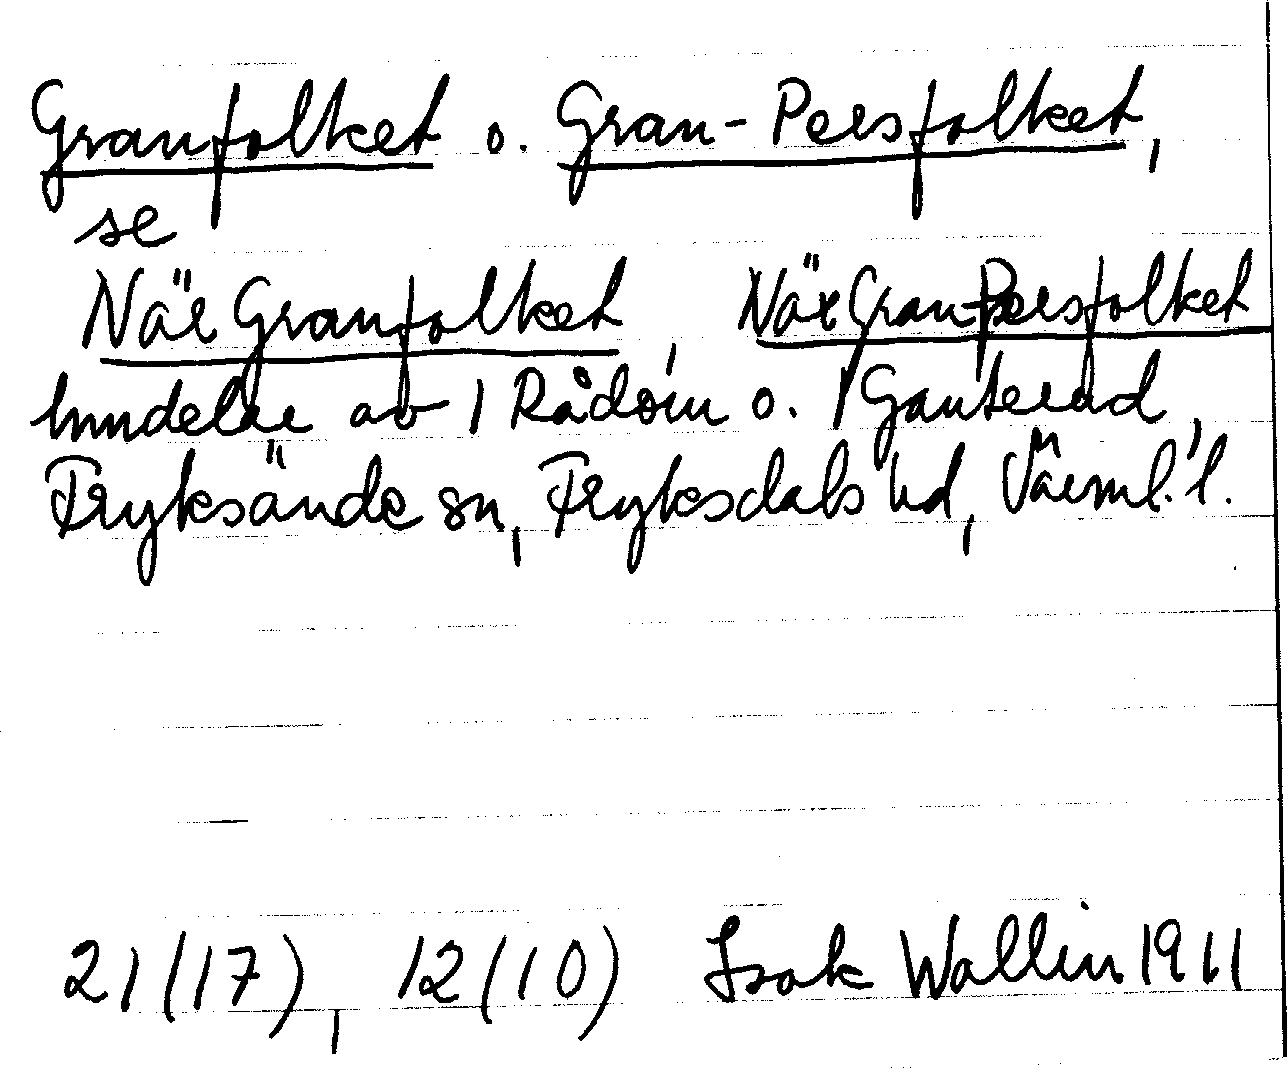 Granfolket o. Gran-Persfolket,
se
När Granfolket, När Gran-Persfolket
hmdelar av 1 Rådom o. 1 Gauterud,
Fryksände sn, Fryksdals hd, Värml. l.
21(17), 12(10) Isak Wallin 1911